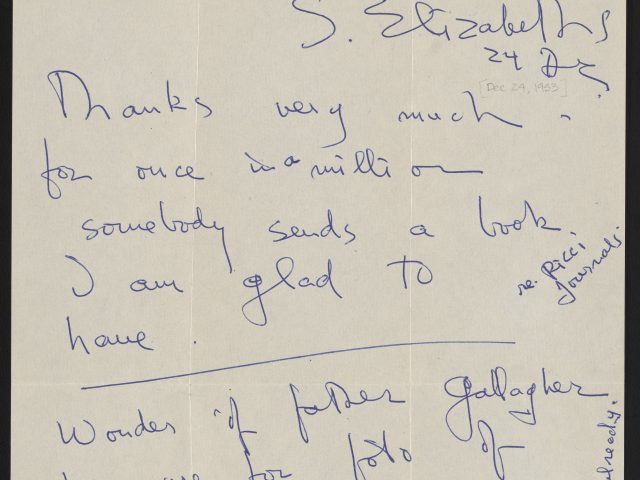 S. Elizabeths
24 Dec
[Dec 24, 1953]
Thanks very much.
for once in a million
somebody sends a book
I am glad to
have.
re. Ricci
Journals.
Wonder if father Gallagher
already.
for foto of